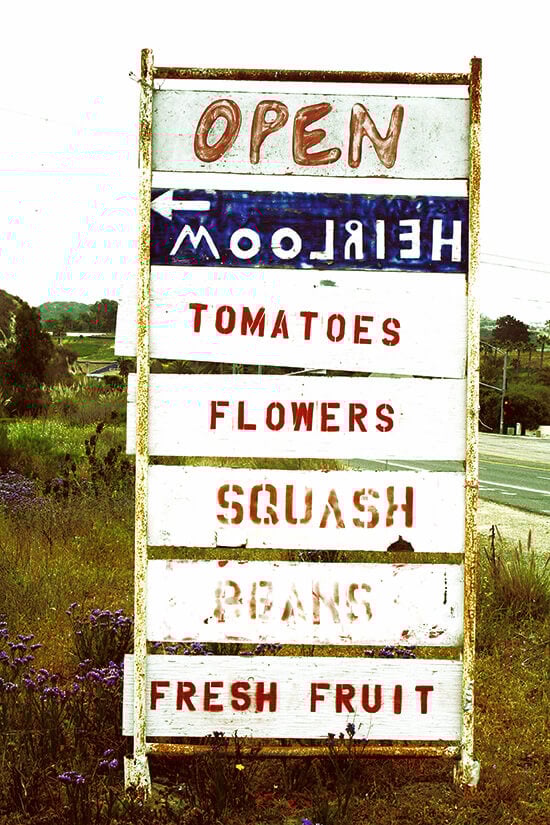 OPEN
HEIRLOOM
TOMATOES
FLOWERS
SQUASH
BEANS
FRESH FRUIT